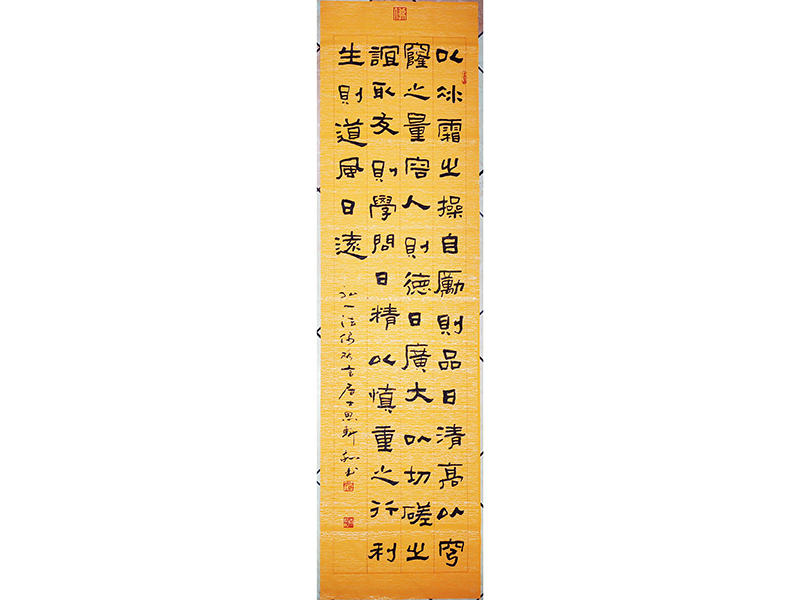 以冰霜之操自勵則品日清高以穹
窿之量容人則德日廣大以切磋之
誼取友則學問日精以慎重之行利
生則道風日遠
弘一法師